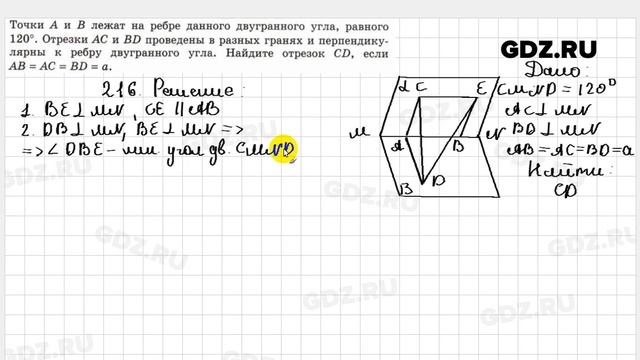 Точки A и B лежат на ребре данного двугранного угла, равного
120°. Отрезки AC и BD проведены в разных гранях и перпендику-
лярны к ребру двугранного угла. Найдите отрезок CD, если
AB = AC = BD = a.
GDZ.RU
216. Решение:
1. BE⊥MN, CE ∥ AB
2. DB⊥MN, BE⊥MN =>
=> ∠DBE – лин угол дв. CMND
Дано:
CMND = 120°
AC⊥MN
BD⊥MN
AB=AC=BD=a
Найти:
CD
α C E
M A B N
B D
GDZ.RU
GDZ.RU
GDZ.RU
GDZ.RU
GDZ.RU